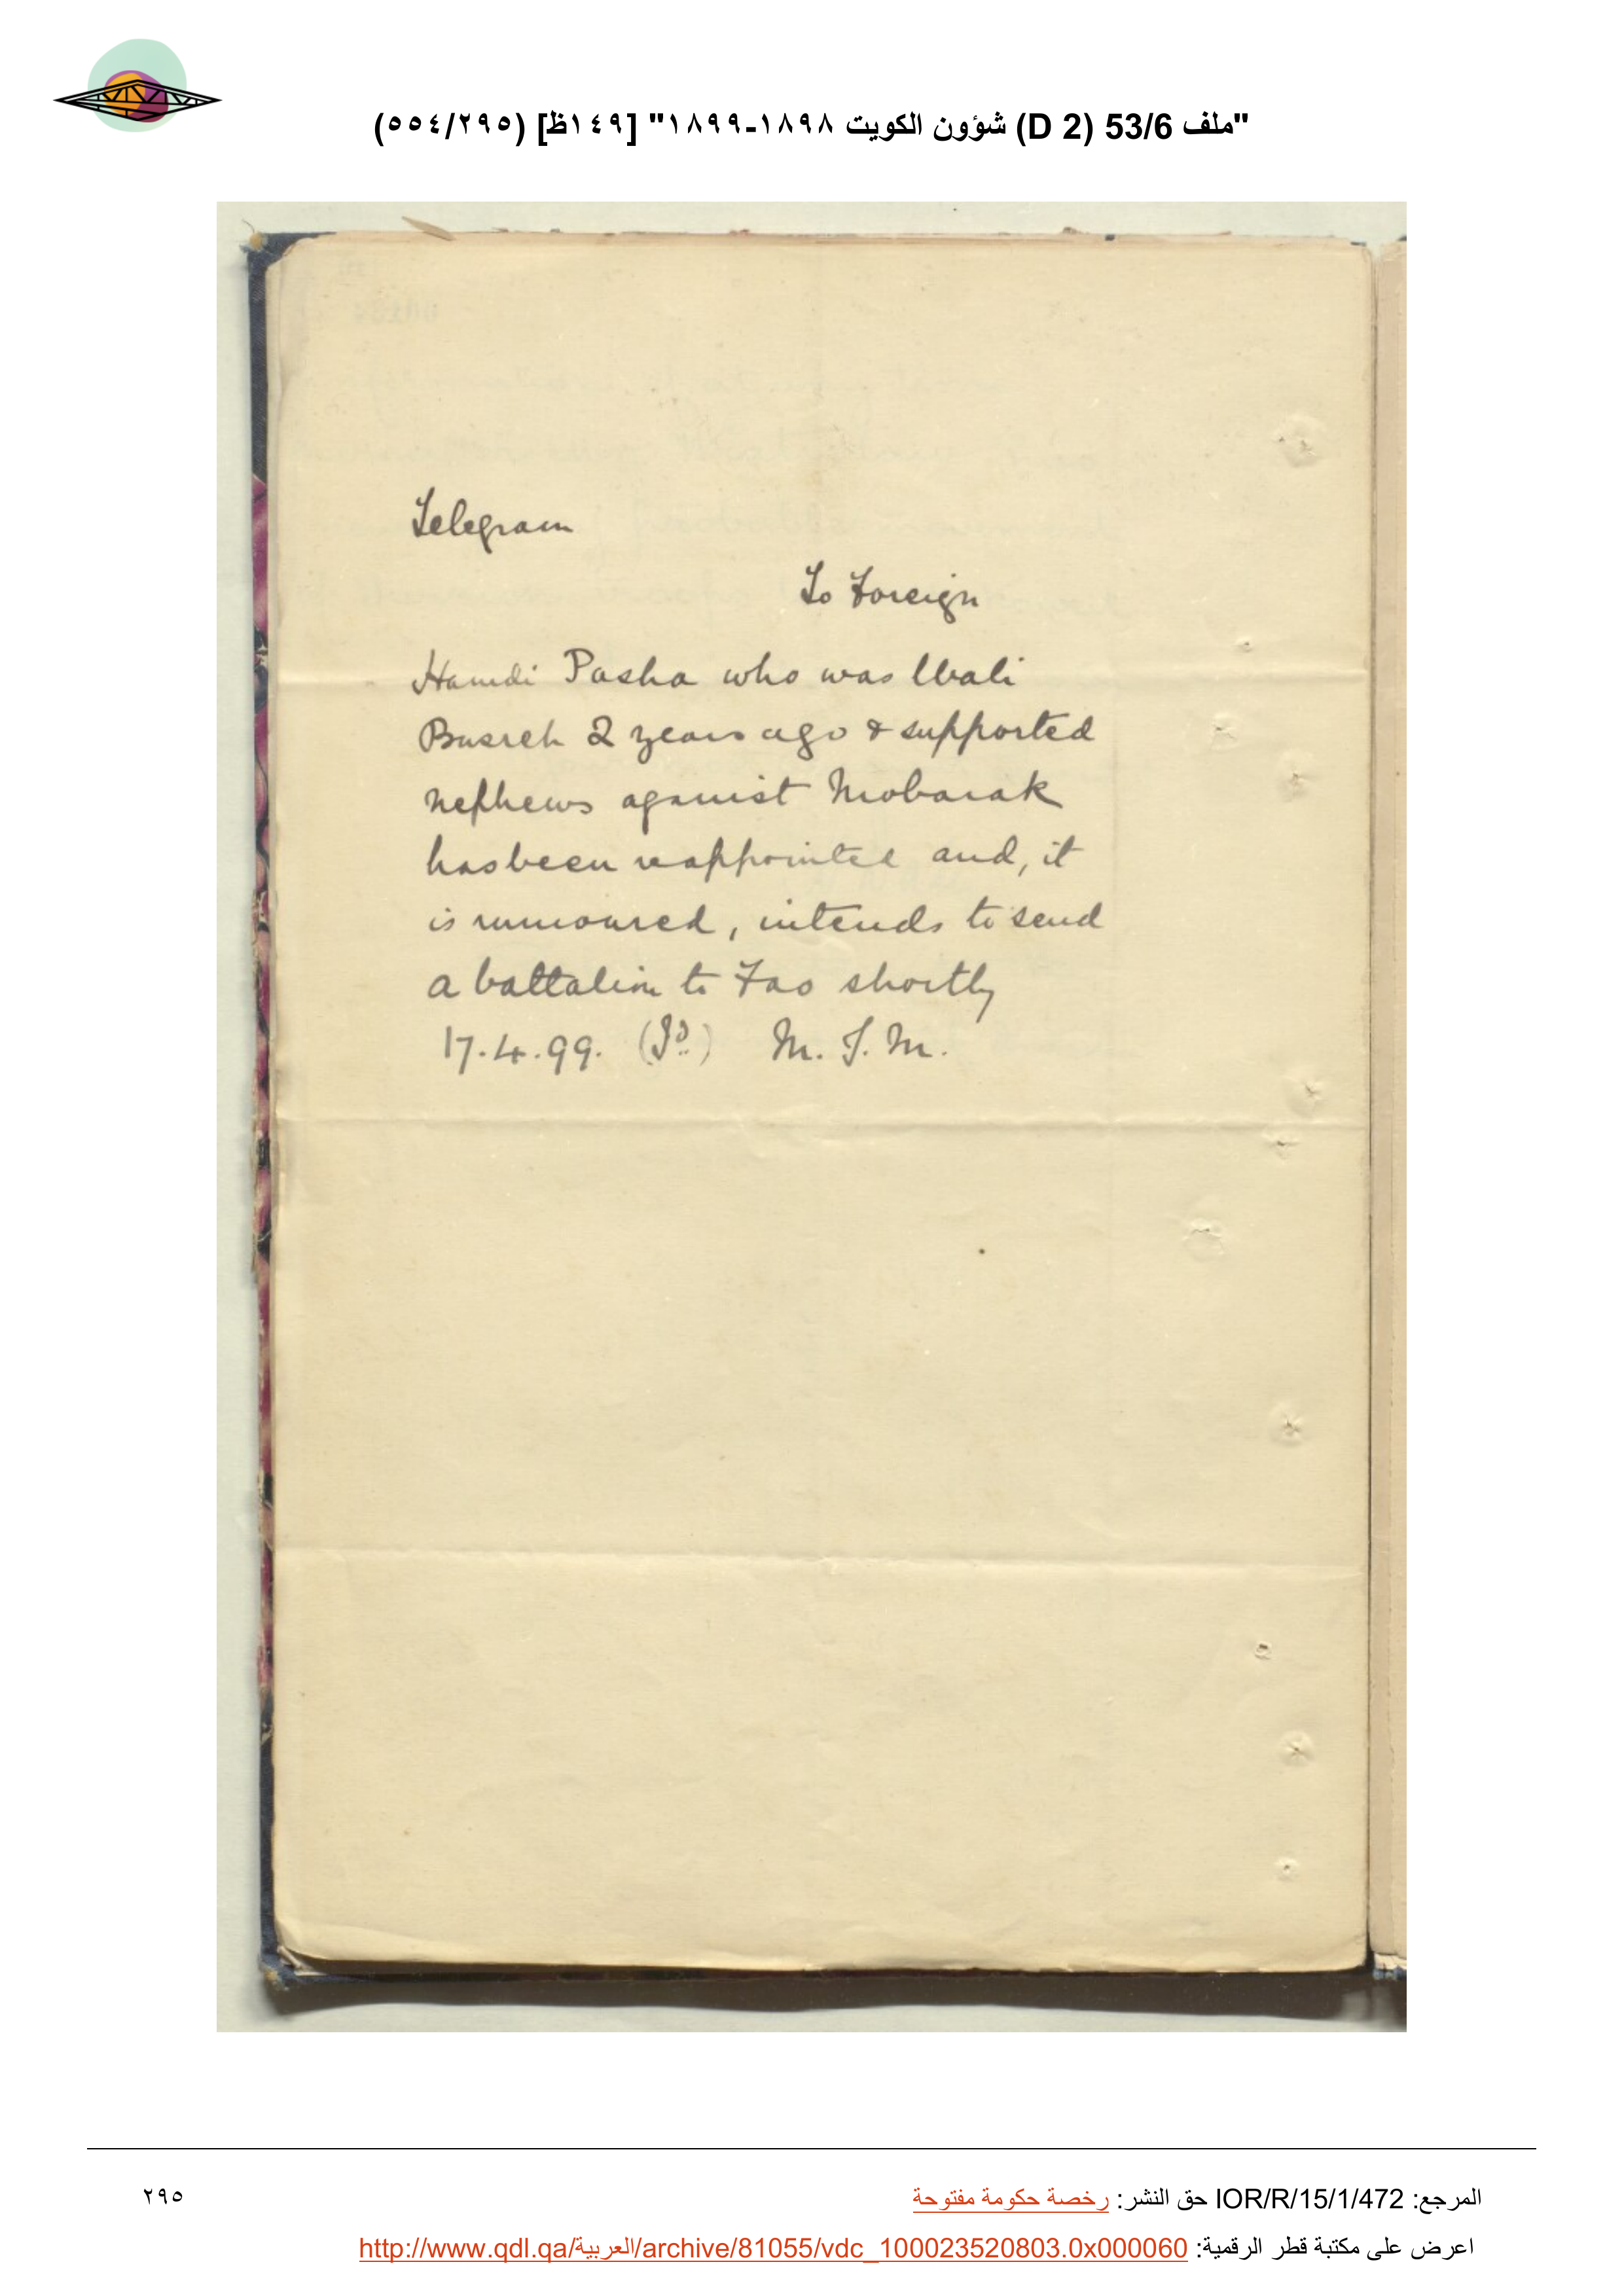 "ملف 53/6 (D 2) شؤون الكويت ١٨٩٨-١٨٩٩" [١٤٩ظ] (٥٥٤/٢٩٥)
Telegram
To Foreign
Hamdi Pasha who was Wali
Busreh 2 years ago & supported
nephews against Mobarak
has been reappointed and, it
is rumoured, intends to send
a battalion to Fao shortly
17.4.99. (Sd.) M. J. M.
المرجع: IOR/R/15/1/472 حق النشر: رخصة حكومة مفتوحة
٢٩٥
اعرض على مكتبة قطر الرقمية: http://www.qdl.qa/العربية/archive/81055/vdc_100023520803.0x000060